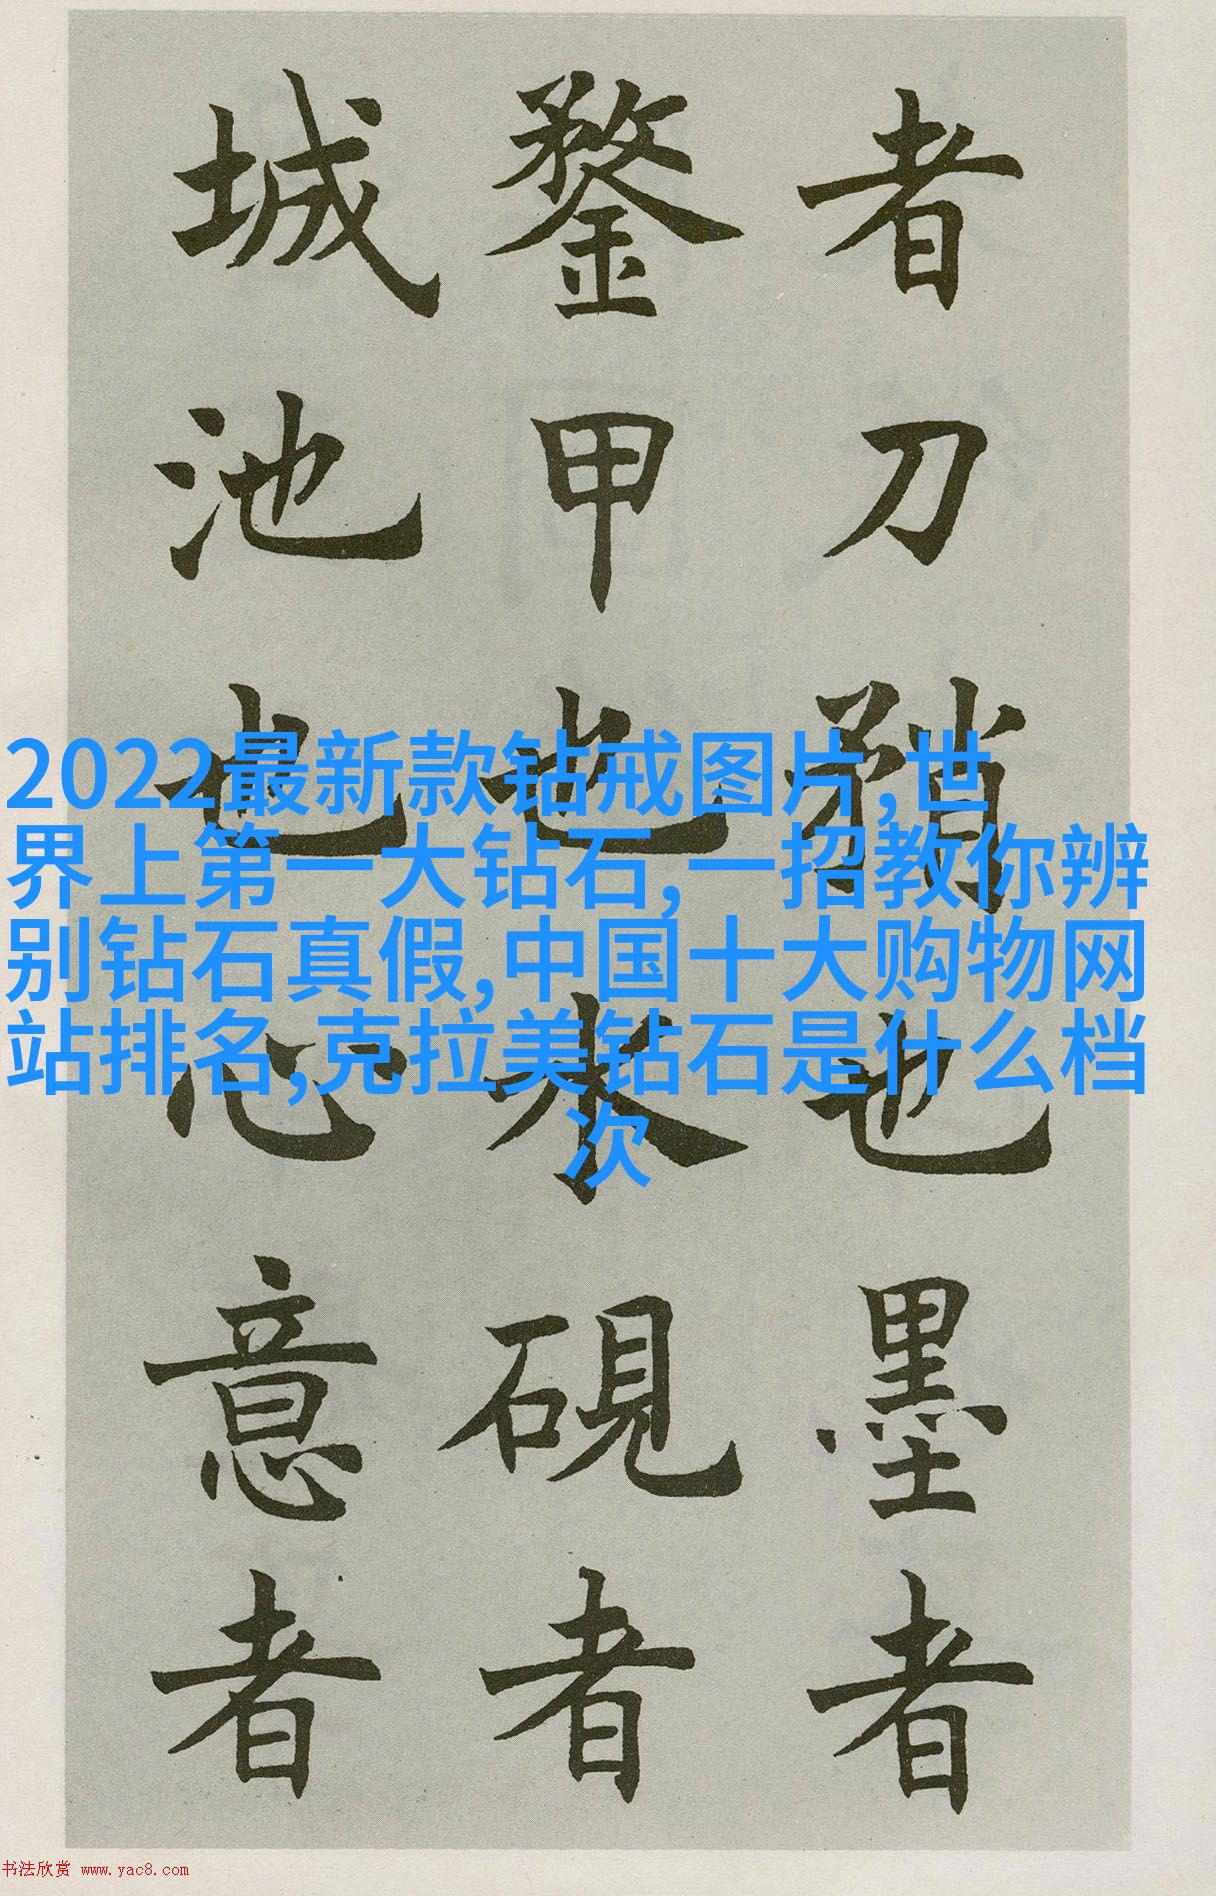 者刀矟也墨者
鍪甲也水硯者
城池也心意者
2022最新款钻戒图片,世
界上第一大钻石,一招教你辨
别钻石真假,中国十大购物网
站排名,克拉美钻石是什么档
次
书法欣赏 www.yac8.com